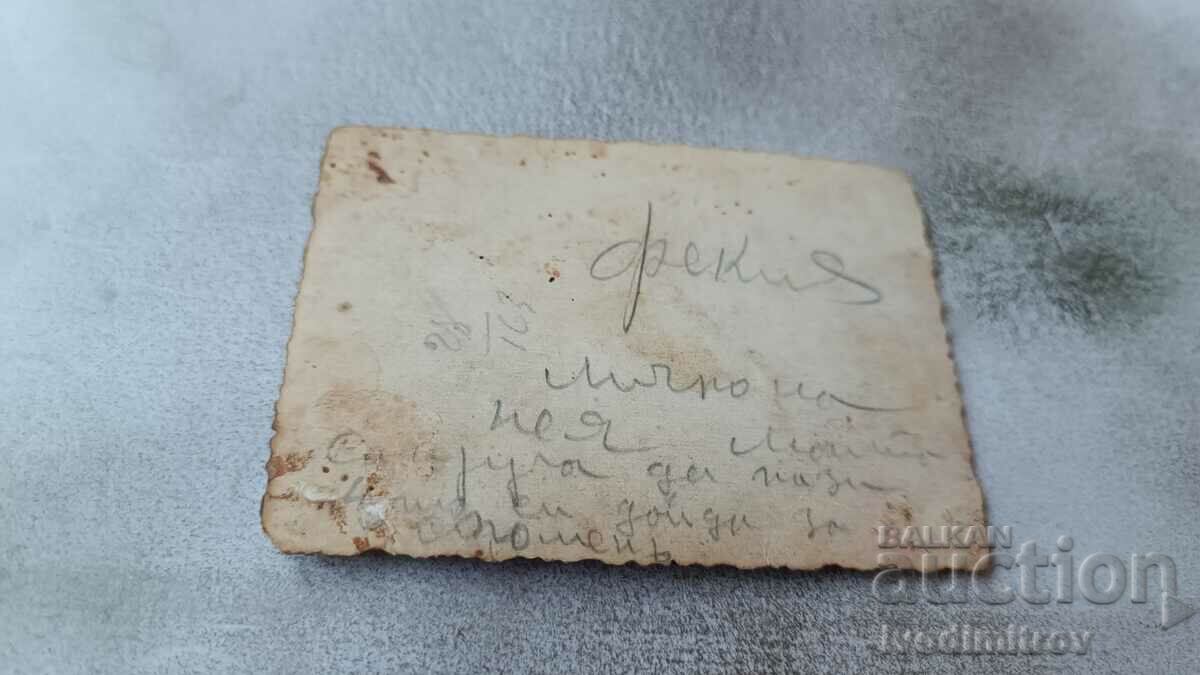 фекия
Лично на
нея Мойта
Съпруга да пази
си дойда за
спомень
BALKAN
auction
ivodimitrov